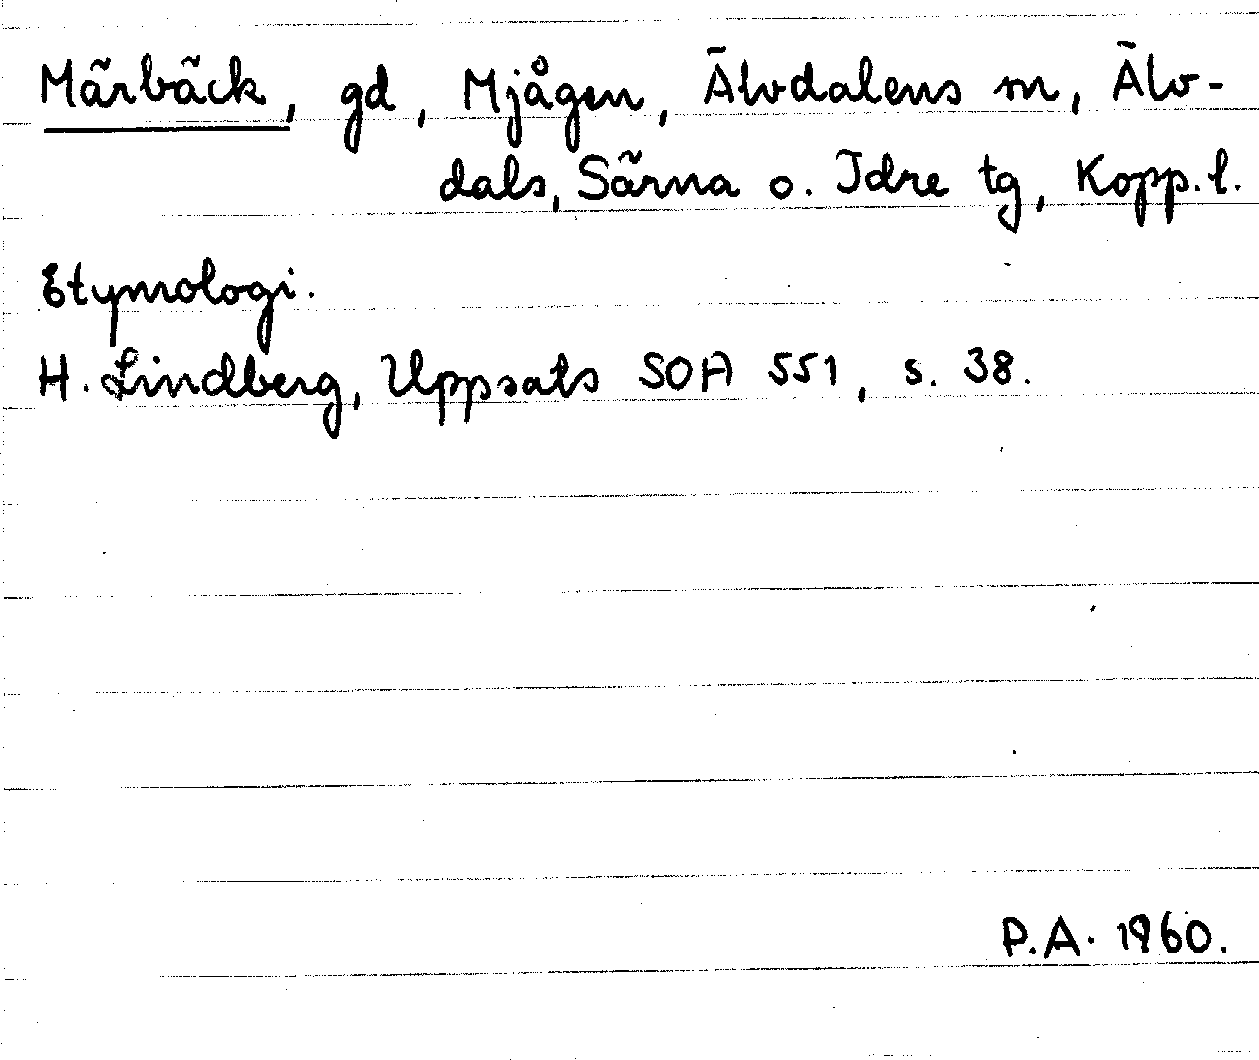 Märbäck, gd, Mjågen, Älvdalens m, Älv-
dals, Särna o. Idre tg, Kopp. l.
Etymologi.
H. Lindberg, Uppsats SOA 551, s. 38.
P.A. 1960.